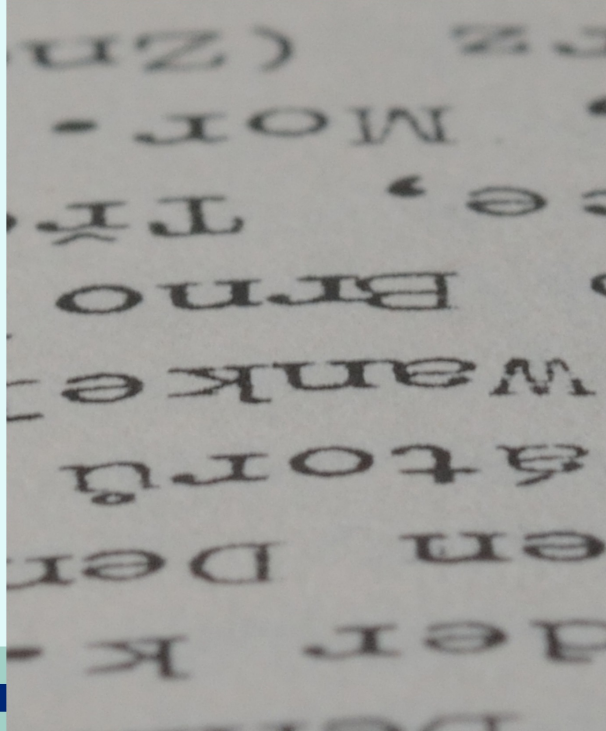 der k.
en Den
átorů
wanke
Brno
e, Tř
Mor.
rz (Zn